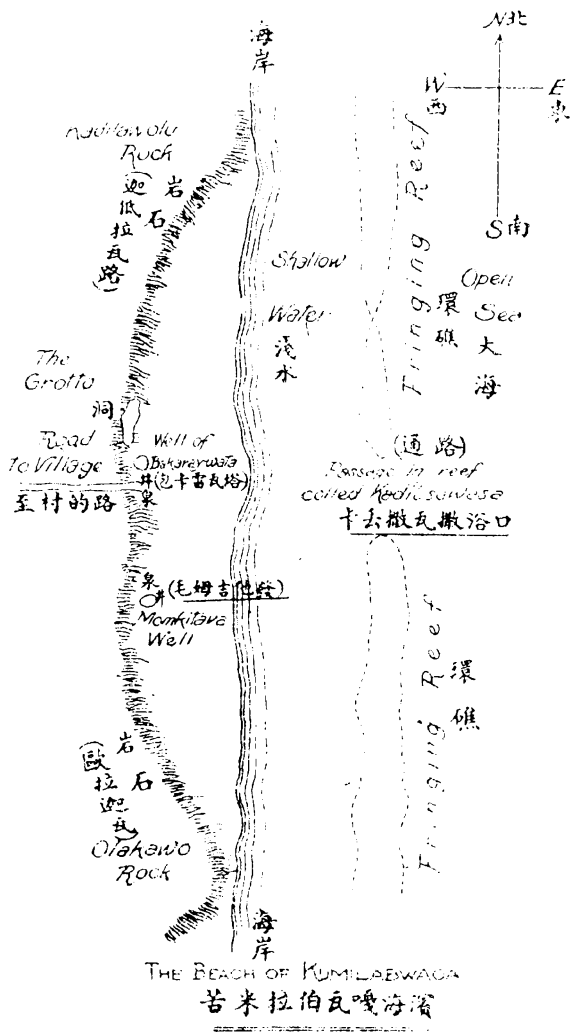 海岸
N北
W
西
E
東
S南
Kadilawolu
Rock
岩石
(迦低拉瓦路)
Shallow
Water
淺水
Fringing Reef
環礁
Open
Sea
大海
The
Grotto
洞
Road
to Village
至村的路
Well of
Bokaraywata
井(包卡雷瓦塔)
泉
(通路)
Passage in reef
called Kadilusawasa
卡去撒瓦撒浴口
泉
井(毛姆吉他發)
Momkitava
Well
Fringing Reef
環礁
岩石
(歐拉迦瓦)
Olakawo
Rock
海岸
THE BEACH OF KUMILABWAGA
苦米拉伯瓦嘎海濱